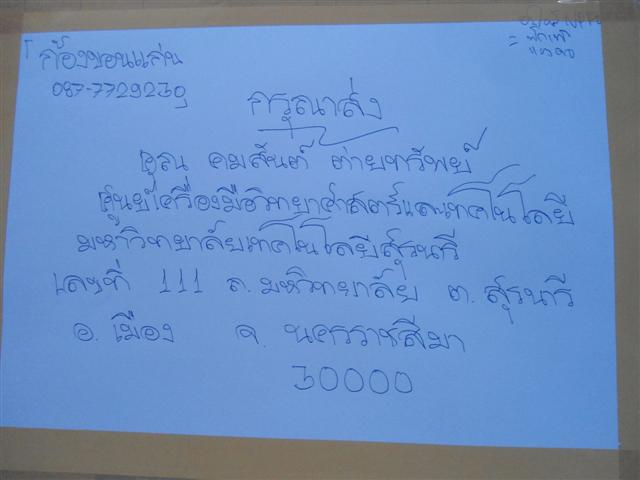 ก้องขอนแก่น
087-7729239
กรุณาส่ง
คุณ คมสันต์ ต่ายทรัพย์
ศูนย์เครื่องมือวิทยาศาสตร์และเทคโนโลยี
มหาวิทยาลัยเทคโนโลยีสุรนารี
เลขที่ 111 ถ.มหาวิทยาลัย ต. สุรนารี
อ. เมือง จ. นครราชสีมา
30000